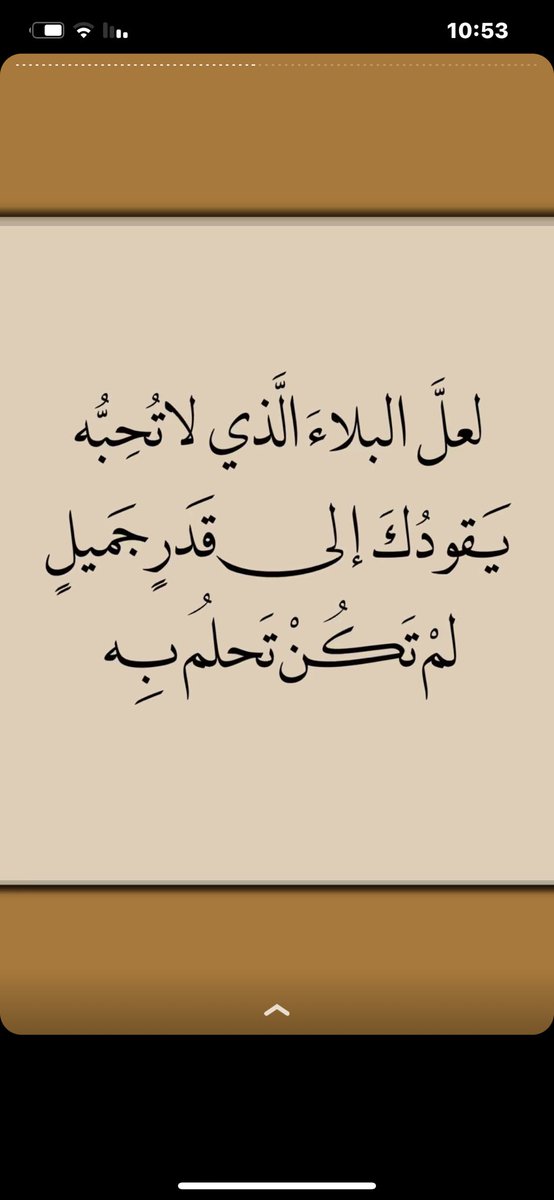 10:53
لعلَّ البلاءَ الَّذي لا تُحِبُّه
يَقودُكَ إلى قَدَرٍ جَميلٍ
لمْ تَكُنْ تَحلُم بِه